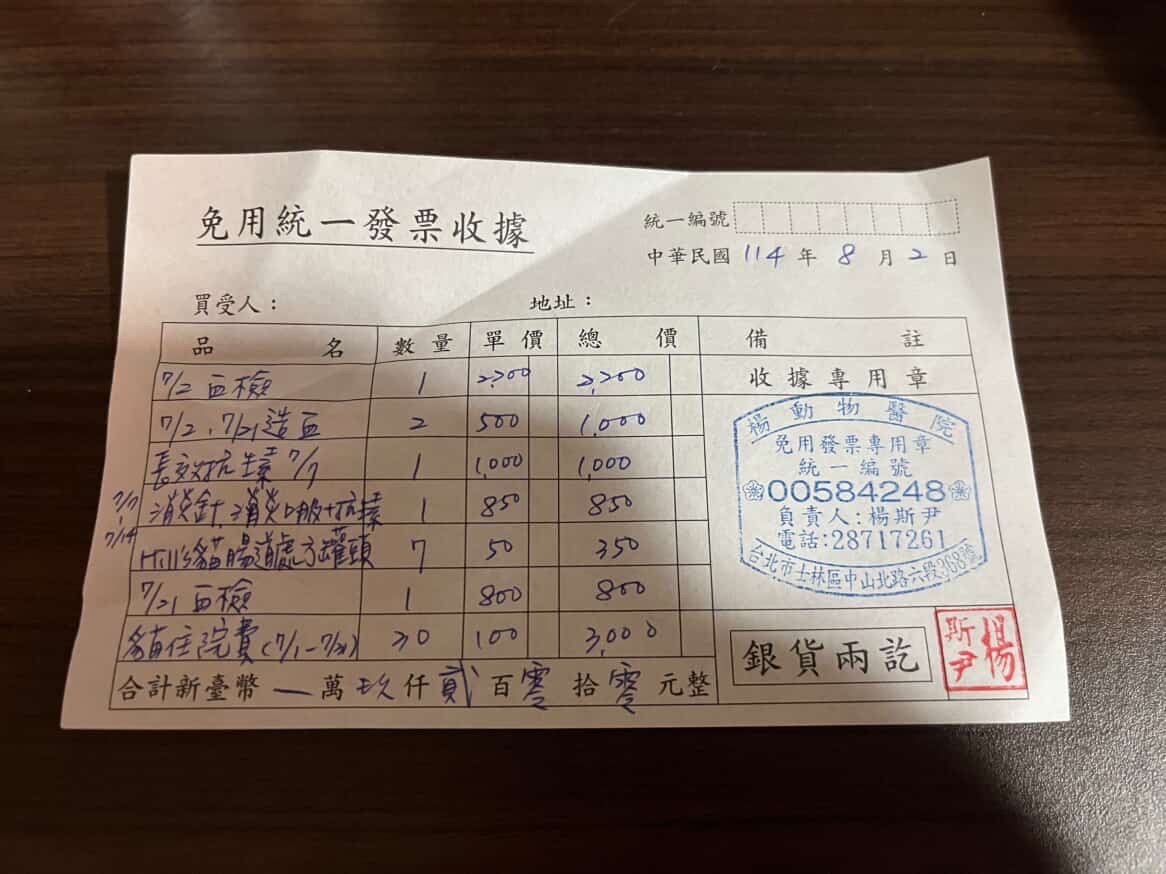 免用統一發票收據
統一編號
中華民國 114 年 8 月 2 日
買受人：
地址：
品名 數量 單價 總價 備註
7/2 血檢 1 2200 2,200
7/2、7/21 造血 2 500 1,000
長效抗生素 7/7 1 1,000 1,000
7/7、7/14 消炎針、消炎口服+抗生素 1 850 850
Hill's貓腸道處方罐頭 7 50 350
7/21 血檢 1 800 800
貓住院費(7/1-7/30) 30 100 3,000
合計新臺幣 — 萬 玖 仟 貳 百 零 拾 零 元整
收據專用章
楊動物醫院
免用發票專用章
統一編號
00584248
負責人:楊斯尹
電話:28717261
台北市士林區中山北路六段368號
銀貨兩訖
楊斯尹